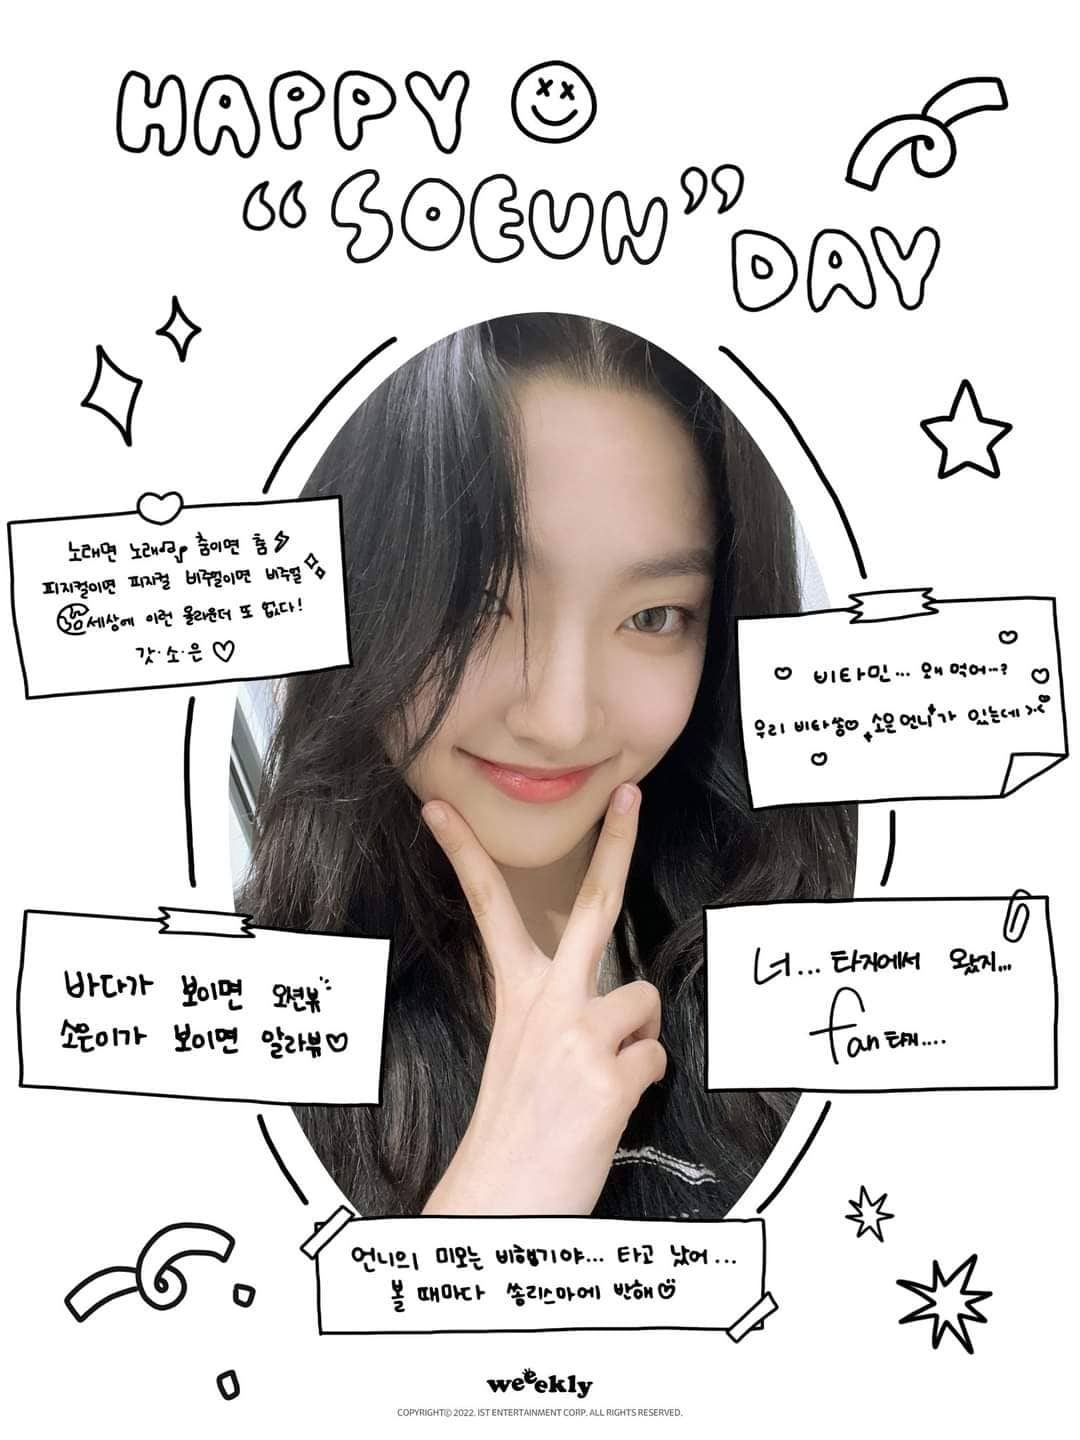 HAPPY
“SOEUN”
DAY
노래면 노래 춤이면 춤
피지컬이면 피지컬 비주얼이면 비주얼
세상에 이런 올라운더 또 없다!
갓·소·은♡
♡ 비타민... 왜 먹어...?
우리 비타쏭♡ 소은언니가 있는데 >.<
바다가 보이면 오션뷰
소은이가 보이면 알라뷰♡
너... 타지에서 왔지...
fan타지....
언니의 미모는 비행기야... 타고 났어...
볼 때마다 쏭리스마에 반해♡
weeekly
COPYRIGHTⓒ 2022. IST ENTERTAINMENT CORP. ALL RIGHTS RESERVED.